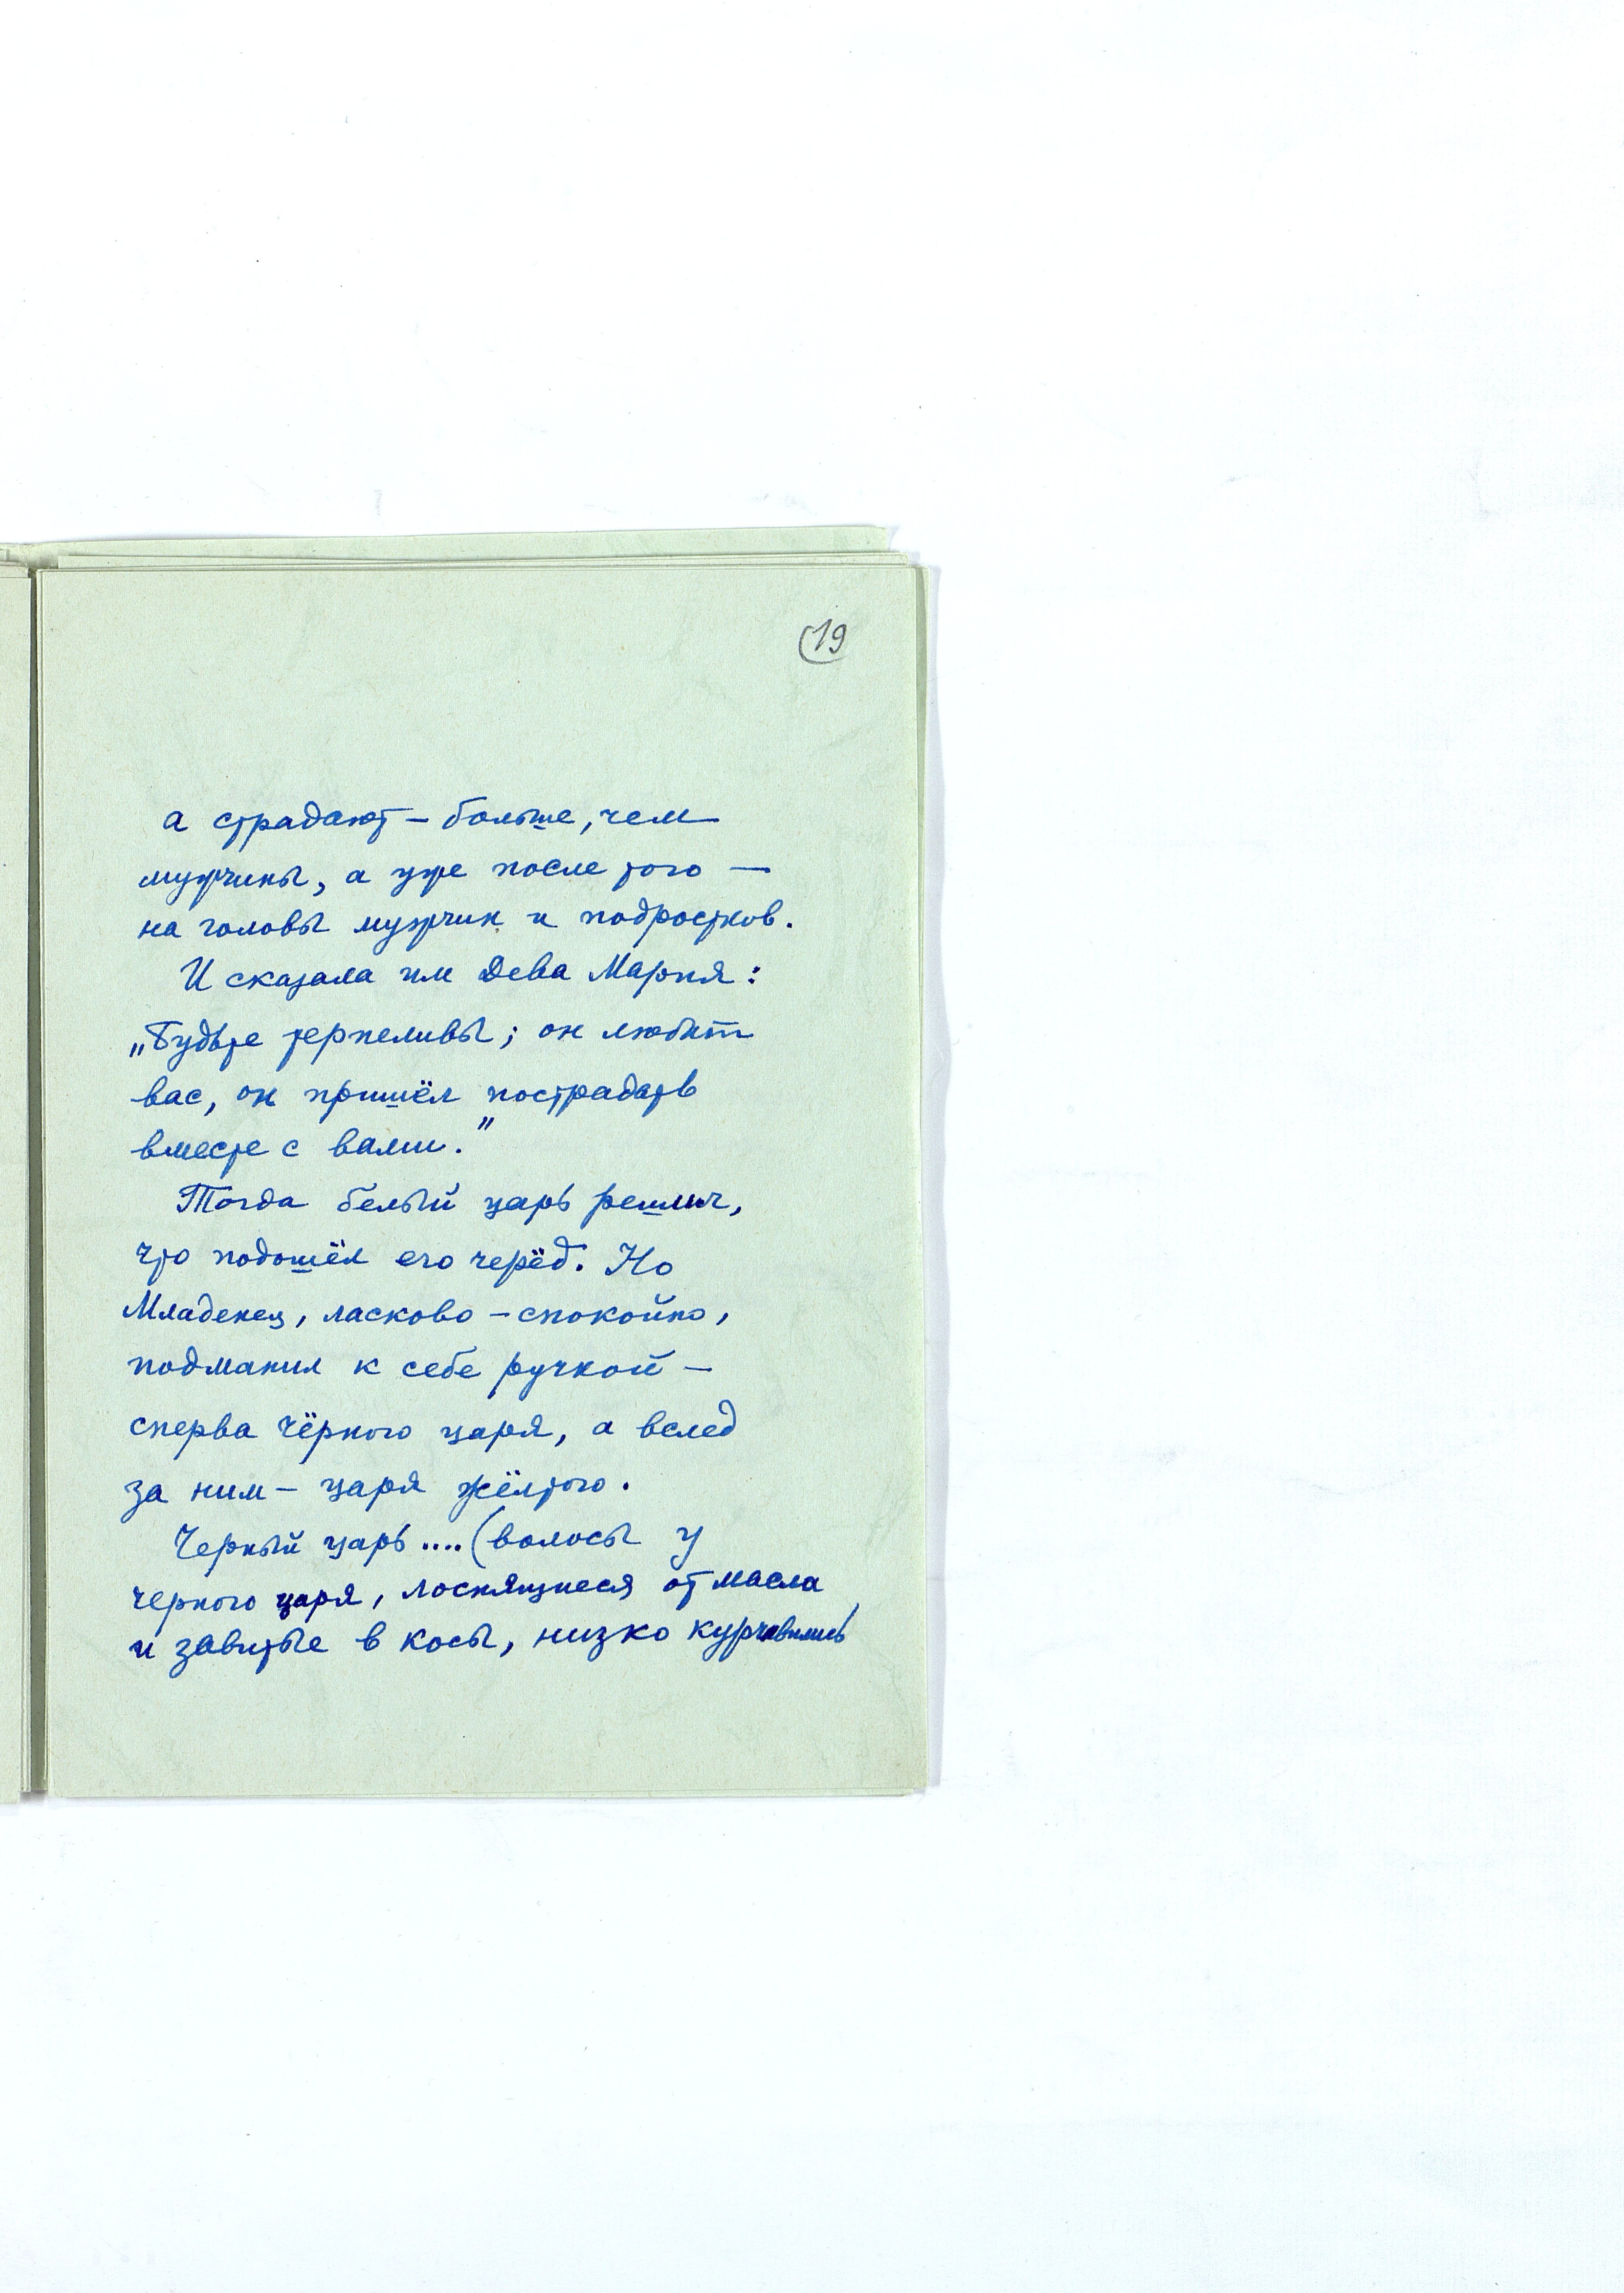 19
а страдают – больше, чем
мужчины, а уже после того —
на головы мужчин и подростков.
И сказала им Дева Мария:
„Будьте терпеливы; он любит
вас, он пришёл пострадать
вместе с вами.”
Тогда белый царь решил,
что подошёл его черёд. Но
Младенец, ласково – спокойно,
подманил к себе ручкой –
сперва чёрного царя, а вслед
за ним – царя жёлтого.
Черный царь .... (волосы у
черного царя, лоснящиеся от масла
и завитые в косы, низко курчавились